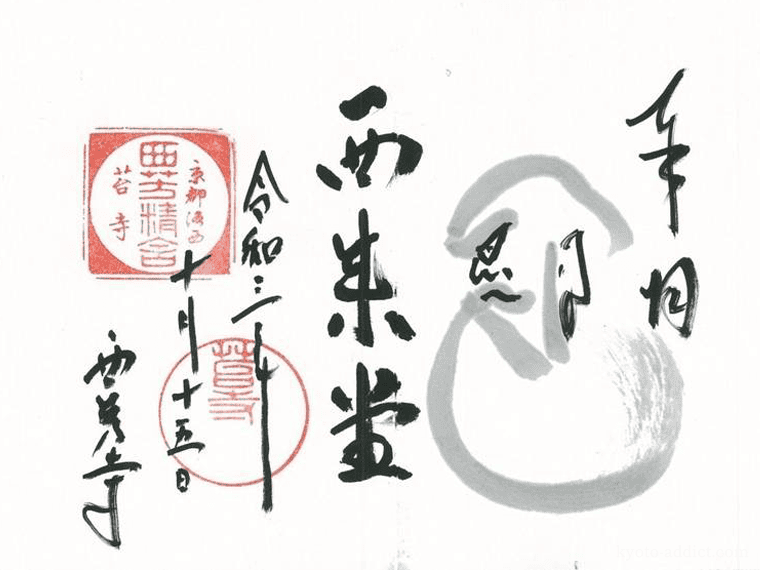 奉拝
西来堂
令和三年
十月十五日
西芳寺
京都洛西
西芳精舎
苔寺